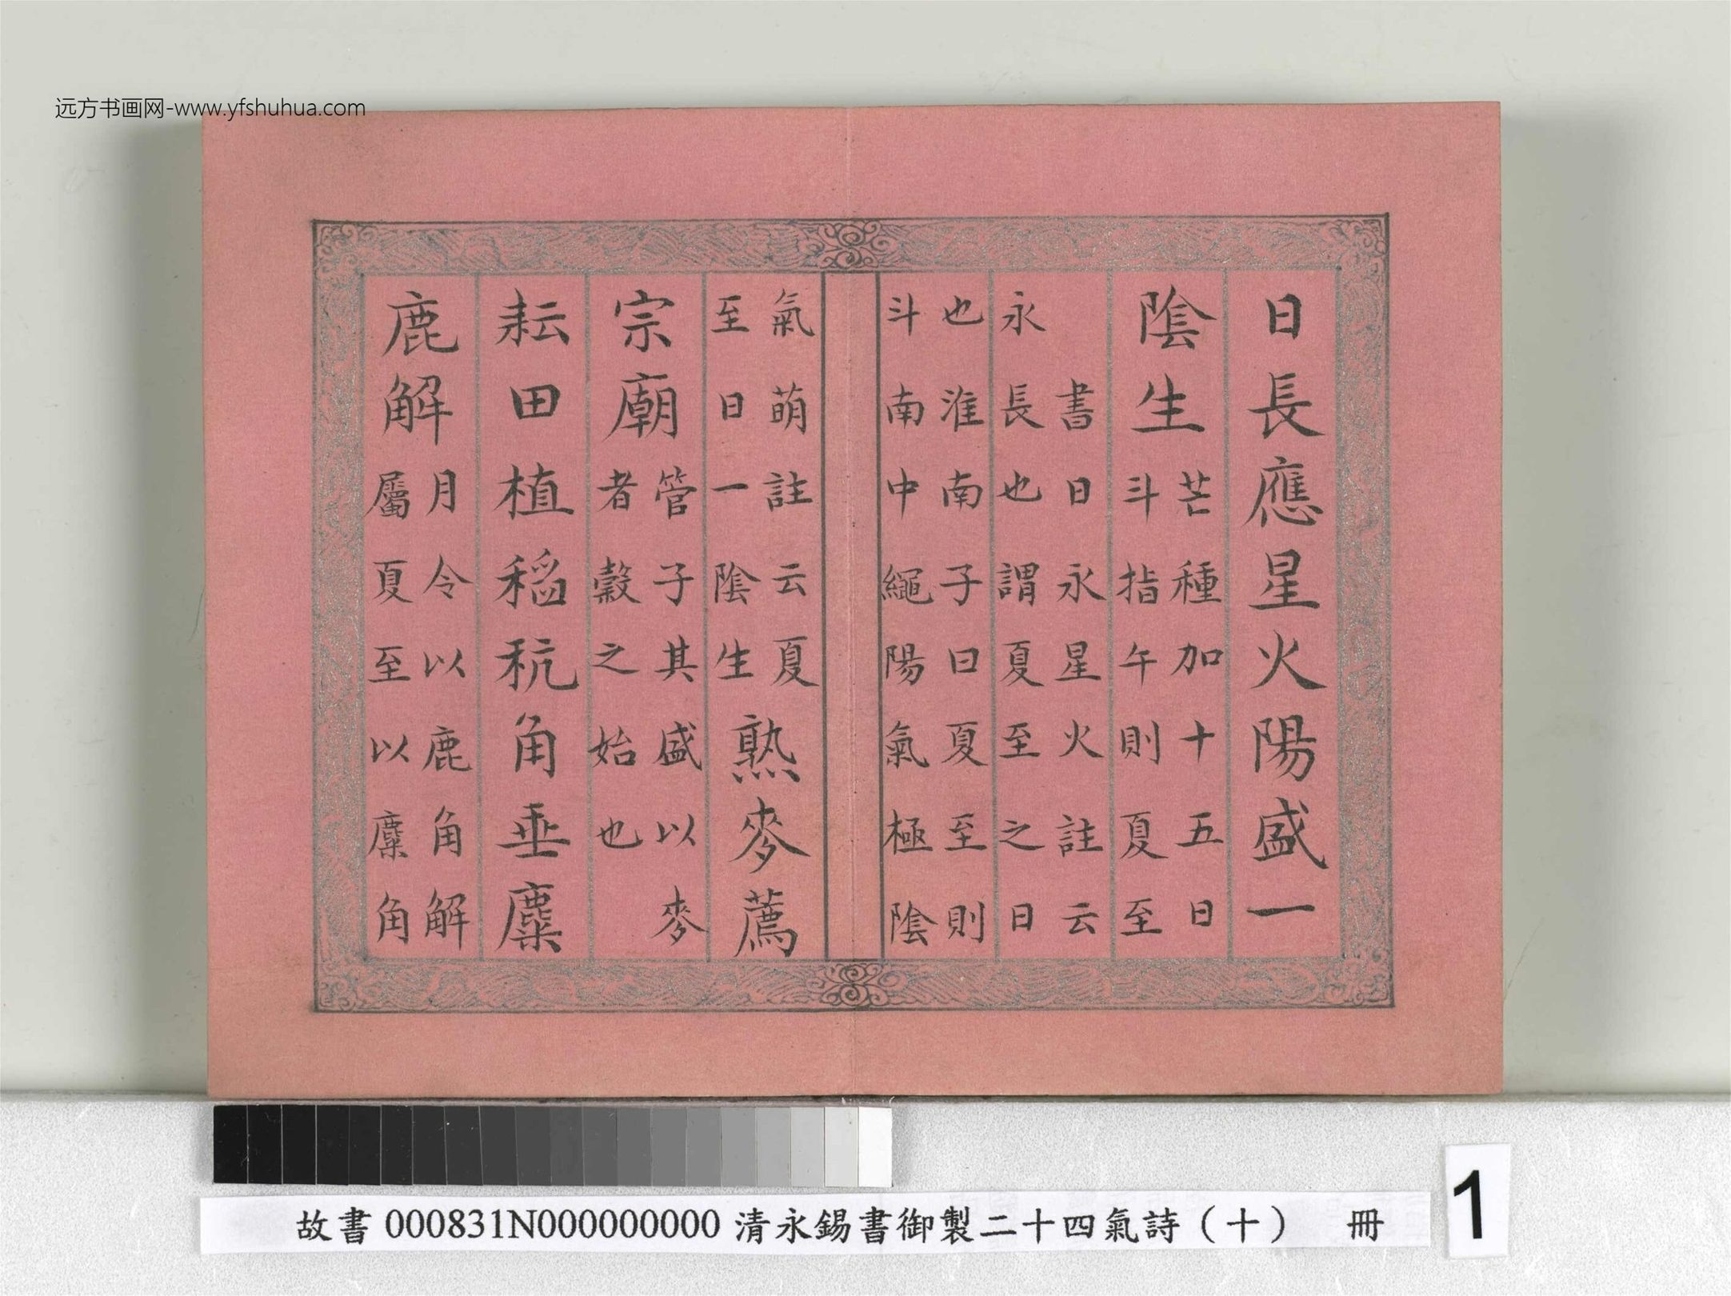 远方书画网-www.yfshuhua.com
日長應星火陽盛一
陰生
芒種加十五日
斗指午則夏至
書日永星火註云
永長也謂夏至之日
也淮南子曰夏至則
斗南中繩陽氣極陰
氣萌註云夏
至日一陰生
熟麥薦
宗廟
管子其盛以麥
者穀之始也
耘田植稻秔角垂麋
鹿解
月令以鹿角解
屬夏至以麋角
故書000831N000000000 清永錫書御製二十四氣詩（十） 冊
1